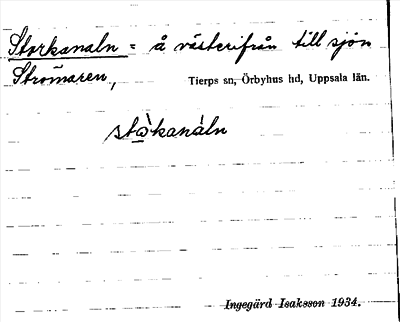 Storkanaln = å västerifrån till sjön
Strömaren, Tierps sn, Örbyhus hd, Uppsala län.
stò̀kanàln
Ingegärd Isaksson 1934.